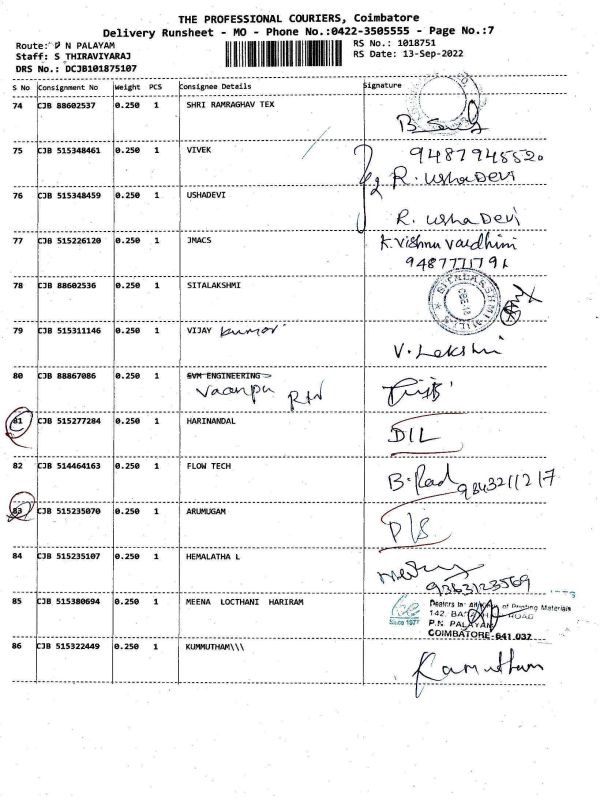 THE PROFESSIONAL COURIERS, Coimbatore
Delivery Runsheet - MO - Phone No.:0422-3505555 - Page No.:7
Route: P N PALAYAM
RS No.: 1018751
Staff: S THIRAVIYARAJ
RS Date: 13-Sep-2022
DRS No.: DCJB101875107
S No Consignment No Weight PCS Consignee Details Signature
74 CJB 88602537 0.250 1 SHRI RAMRAGHAV TEX
75 CJB 515348461 0.250 1 VIVEK 9487945520
R. UshaDEVI
76 CJB 515348459 0.250 1 USHADEVI
R. Usha Devi
77 CJB 515226120 0.250 1 JMACS K Vishnu Vardhini
9487771791
78 CJB 88602536 0.250 1 SITALAKSHMI
79 CJB 515311146 0.250 1 VIJAY Kumar
V. Lekshmi
80 CJB 88867086 0.250 1 SVM ENGINEERING
81 CJB 515277284 0.250 1 HARINANDAL
D/L
82 CJB 514464163 0.250 1 FLOW TECH
9843211217
83 CJB 515235070 0.250 1 ARUMUGAM
D/S
84 CJB 515235107 0.250 1 HEMALATHA L
9363123569
85 CJB 515380694 0.250 1 MEENA LOCTHANI HARIRAM
Since 1977
Dealers in: All Kinds of Printing Materials
142, ROAD
P.N. PALAYAM
COIMBATORE-641 037
86 CJB 515322449 0.250 1 KUMMUTHAM\\\
Kamutham